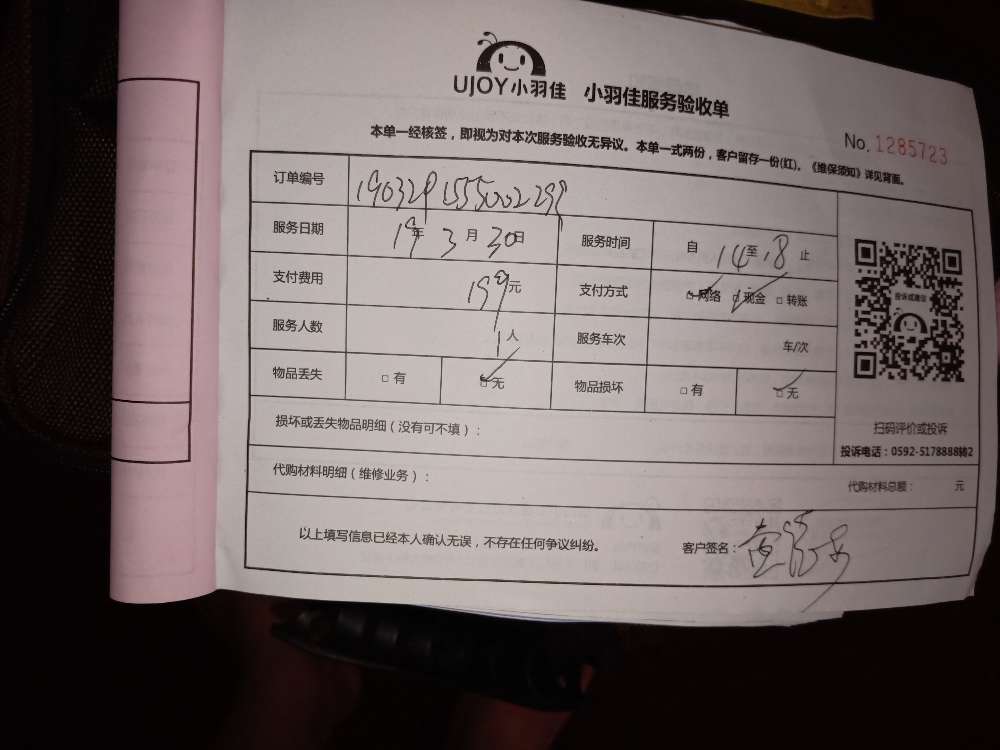 UJOY小羽佳 小羽佳服务验收单
本单一经核签，即视为对本次服务验收无异议。本单一式两份，客户留存一份(红)。《维保须知》详见背面。
No. 1285723
订单编号 190329155500229
服务日期 19年 3月 30日 服务时间 自 14至18 止
支付费用 199元 支付方式 □网络 □现金 □转账
服务人数 1人 服务车次 车/次
物品丢失 □有 □无 物品损坏 □有 □无
投诉或建议
扫码评价或投诉
投诉电话：0592-5178888转2
损坏或丢失物品明细（没有可不填）：
代购材料明细（维修业务）： 代购材料总额： 元
以上填写信息已经本人确认无误，不存在任何争议纠纷。 客户签名：